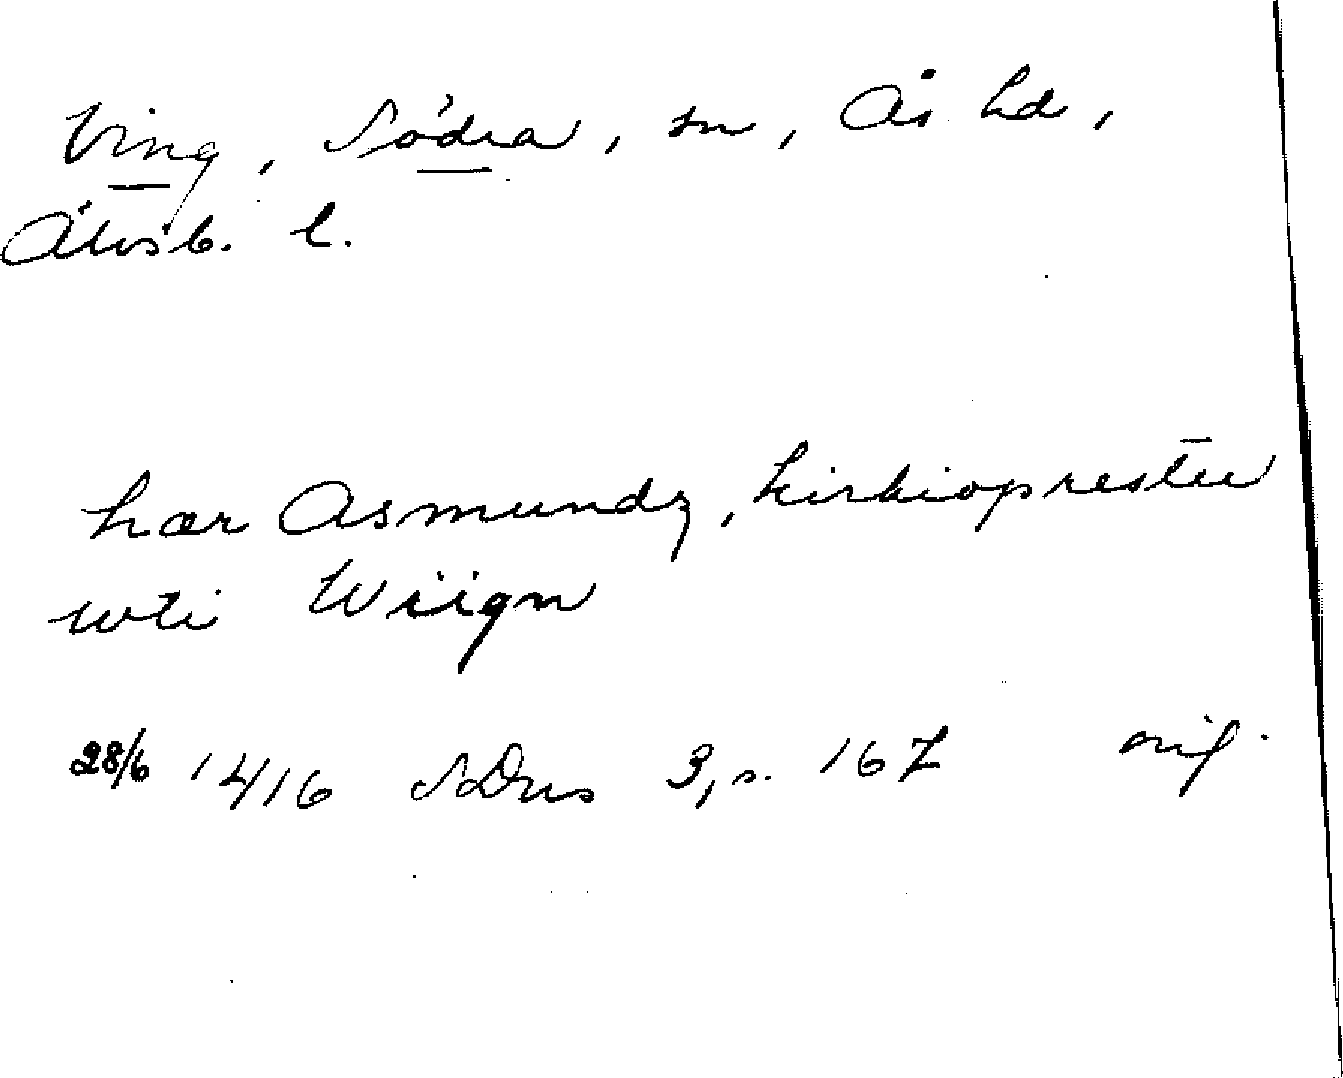 Ving, Södra, sn, Ås hd,
Älvsb. l.
hær Asmundz, kirkiopresten
wti Wiign
28/6 1416 SDns 3, s. 167 orig.